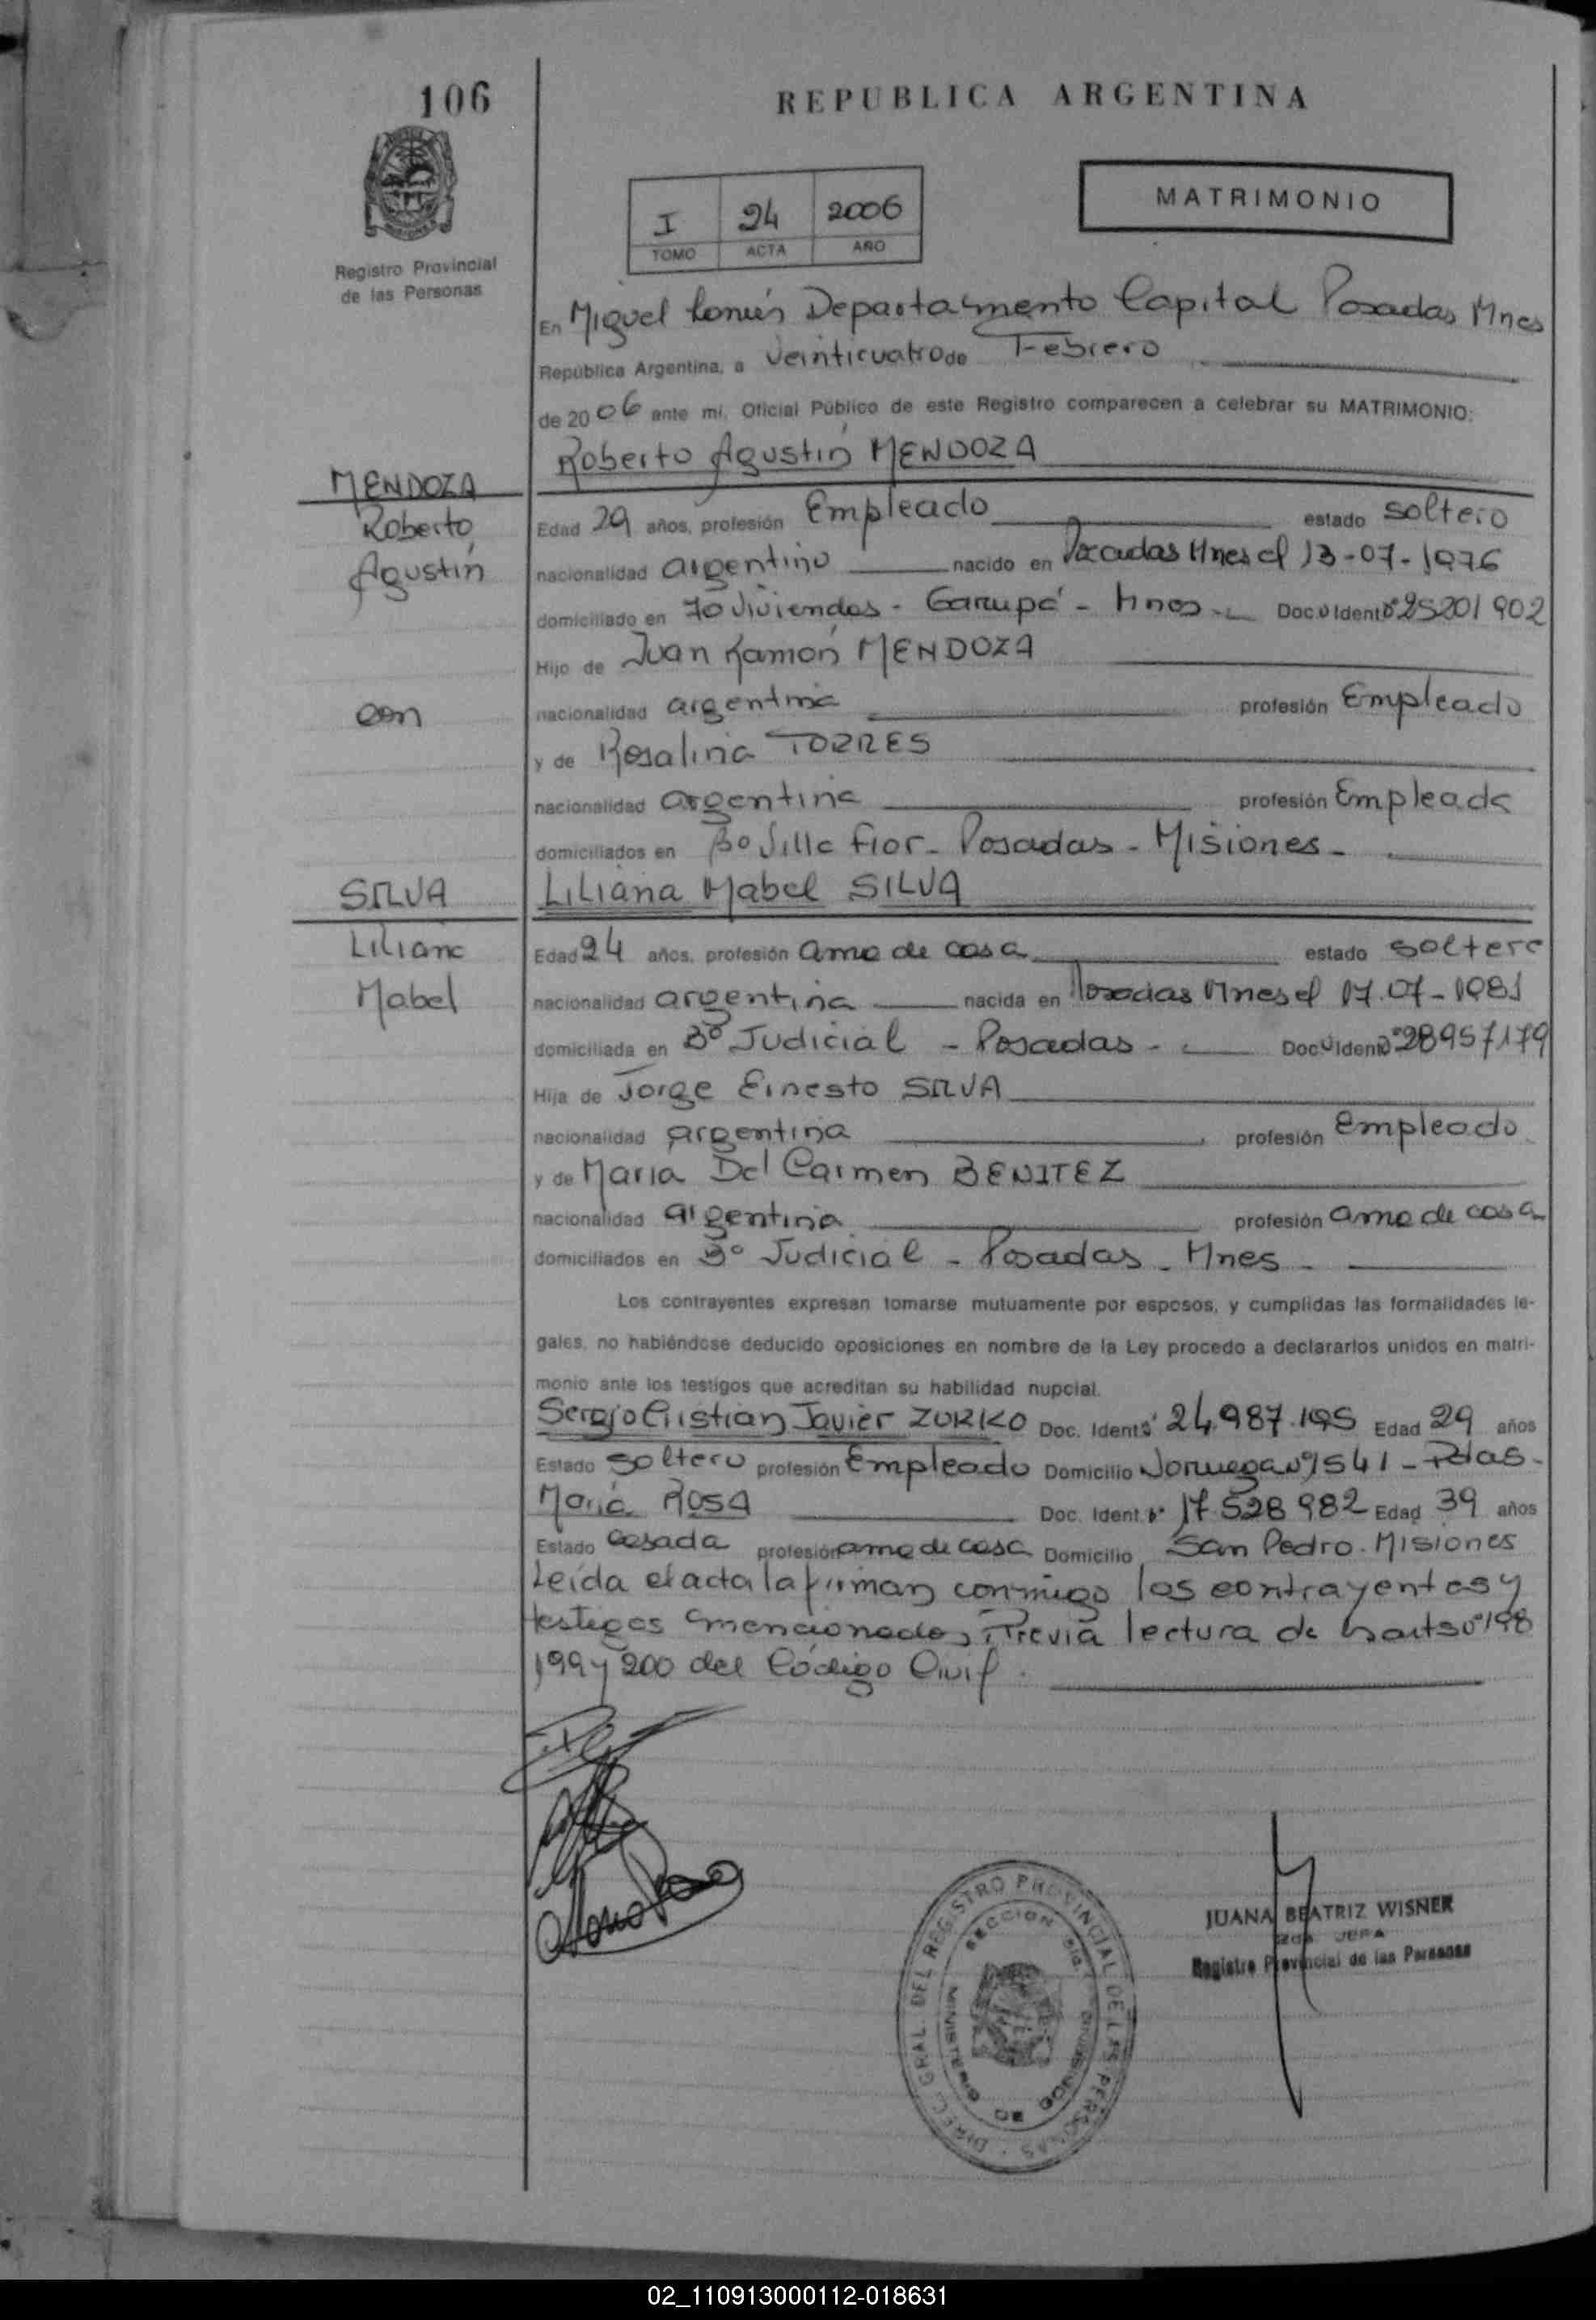 106
REPUBLICA ARGENTINA
MATRIMONIO
I 24 2006
TOMO ACTA AÑO
Registro Provincial
de las Personas
En Miguel Lanús Departamento Capital Posadas Mnes
República Argentina, a veinticuatro de Febrero
de 2006 ante mí, Oficial Público de este Registro comparecen a celebrar su MATRIMONIO:
Roberto Agustín MENDOZA
MENDOZA
Roberto
Agustín
Edad 29 años, profesión Empleado estado soltero
nacionalidad argentino nacido en Posadas Mnes el 13-07-1976
domiciliado en 70 Viviendas - Garupá - Mnes - Doc. Ident. Nº 25201902
Hijo de Juan Ramón MENDOZA
con
nacionalidad argentina profesión Empleado
y de Rosalina TORRES
nacionalidad argentina profesión Empleada
domiciliados en Bº Villa Flor - Posadas - Misiones -
SILVA
Liliana
Mabel
Liliana Mabel SILVA
Edad 24 años, profesión ama de casa estado soltera
nacionalidad argentina nacida en Posadas Mnes el 17-07-1981
domiciliada en Bº Judicial - Posadas - Doc. Ident. Nº 28957179
Hija de Jorge Ernesto SILVA
nacionalidad argentina profesión Empleado
y de Maria Del Carmen BENITEZ
nacionalidad argentina profesión ama de casa
domiciliados en Bº Judicial - Posadas - Mnes -
Los contrayentes expresan tomarse mutuamente por esposos, y cumplidas las formalidades le-
gales, no habiéndose deducido oposiciones en nombre de la Ley procedo a declararlos unidos en matri-
monio ante los testigos que acreditan su habilidad nupcial.
Sergio Cristian Javier ZURKO Doc. Ident. Nº 24.987.195 Edad 29 años
Estado soltero profesión Empleado Domicilio Noruega Nº 1541 - Pdas -
María ROSA Doc. Ident. Nº 17528982 Edad 39 años
Estado casada profesión ama de casa Domicilio San Pedro - Misiones
Leída el acta la firman conmigo los contrayentes y
testigos mencionados, Previa lectura de los arts Nº 198
199 y 200 del Código Civil.
DIREC. GRAL. DEL REGISTRO PROVINCIAL DE LAS PERSONAS
SECCION
JUANA BEATRIZ WISNER
2da. JEFA
Registro Provincial de las Personas
02_110913000112-018631